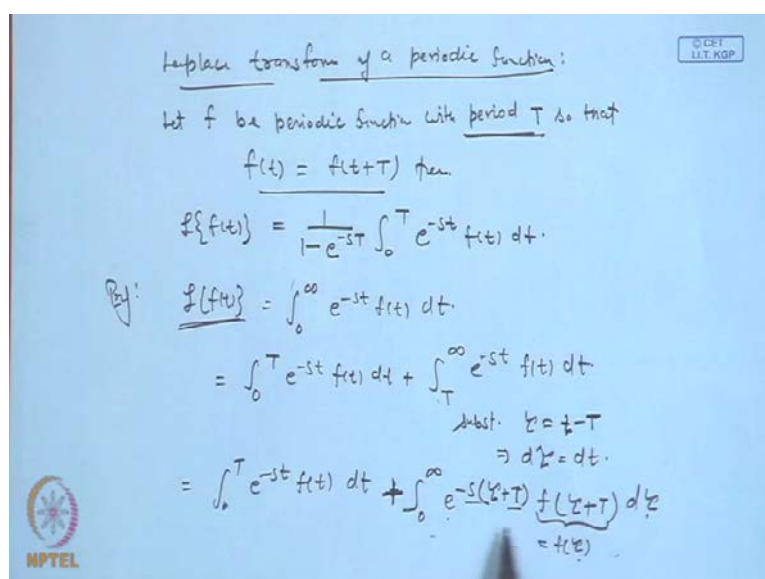 Laplace transform of a periodic function:
© CET
I.I.T. KGP
Let f be periodic function with period T so that
f(t) = f(t+T) then.
ℒ{f(t)} = 1/(1-e^{-sT}) ∫_0^T e^{-st} f(t) dt.
Proof: ℒ{f(t)} = ∫_0^∞ e^{-st} f(t) dt.
= ∫_0^T e^{-st} f(t) dt + ∫_T^∞ e^{-st} f(t) dt
subst. τ = t-T
⇒ dτ = dt.
= ∫_0^T e^{-st} f(t) dt + ∫_0^∞ e^{-s(τ+T)} f(τ+T) dτ
= f(τ)
NPTEL